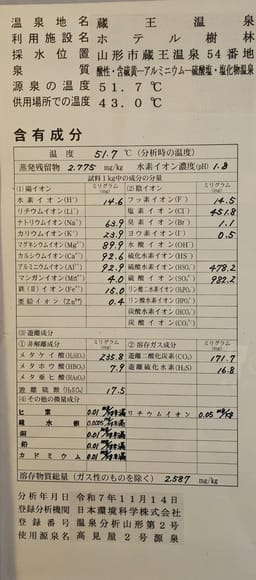 温泉地名 蔵王温泉
利用施設名 ホテル樹林
採水位置 山形市蔵王温泉54番地
泉質 酸性・含硫黄ーアルミニウムー硫酸塩・塩化物温泉
源泉の温度 51.7℃
供用場所での温度 43.0℃
含有成分
温度 51.7℃(分析時の温度)
蒸発残留物 2.775 mg/kg 水素イオン濃度(pH) 1.8
試料1kg中の成分の分量
(1)陽イオン ミリグラム(mg) (2)陰イオン ミリグラム(mg)
水素イオン(H⁺) 14.6 フッ素イオン(F⁻) 14.5
リチウムイオン(Li⁺) 塩素イオン(Cl⁻) 451.8
ナトリウムイオン(Na⁺) 63.9 臭素イオン(Br⁻) 1.1
カリウムイオン(K⁺) 23.9 ヨウ素イオン(I⁻) 0.5
マグネシウムイオン(Mg²⁺) 89.9 水酸イオン(OH⁻)
カルシウムイオン(Ca²⁺) 92.6 硫化水素イオン(HS⁻)
アルミニウムイオン(Al³⁺) 92.9 硫酸水素イオン(HSO₄⁻) 478.2
マンガンイオン(Mn²⁺) 4.0 硫酸イオン(SO₄²⁻) 982.2
鉄(Ⅱ)イオン(Fe²⁺) 15.0 リン酸二水素イオン(H₂PO₄⁻)
亜鉛イオン(Zn²⁺) 0.4 リン酸水素イオン(HPO₄²⁻)
炭酸水素イオン(HCO₃⁻)
炭酸イオン(CO₃²⁻)
(3)遊離成分
①非解離成分 ミリグラム(mg) ②溶存ガス成分 ミリグラム(mg)
メタケイ酸(H₂SiO₃) 235.8 遊離二酸化炭素(CO₂) 171.7
メタホウ酸(HBO₂) 7.9 遊離硫化水素(H₂S) 16.8
メタ亜ヒ酸(HAsO₂)
遊離硫酸(H₂SO₄) 17.5
(4)その他の微量成分
ヒ素 0.01 mg/kg未満 リチウムイオン 0.05 mg/kg未満
総水銀 0.0005 mg/kg未満
銅 0.01 mg/kg未満
鉛 0.01 mg/kg未満
カドミウム 0.01 mg/kg未満
溶存物質総量(ガス性のものを除く) 2.587 mg/kg
分析年月日 令和7年11月14日
登録分析機関 日本環境科学株式会社
登録番号 温泉分析山形第2号
使用源泉名 高見屋2号源泉